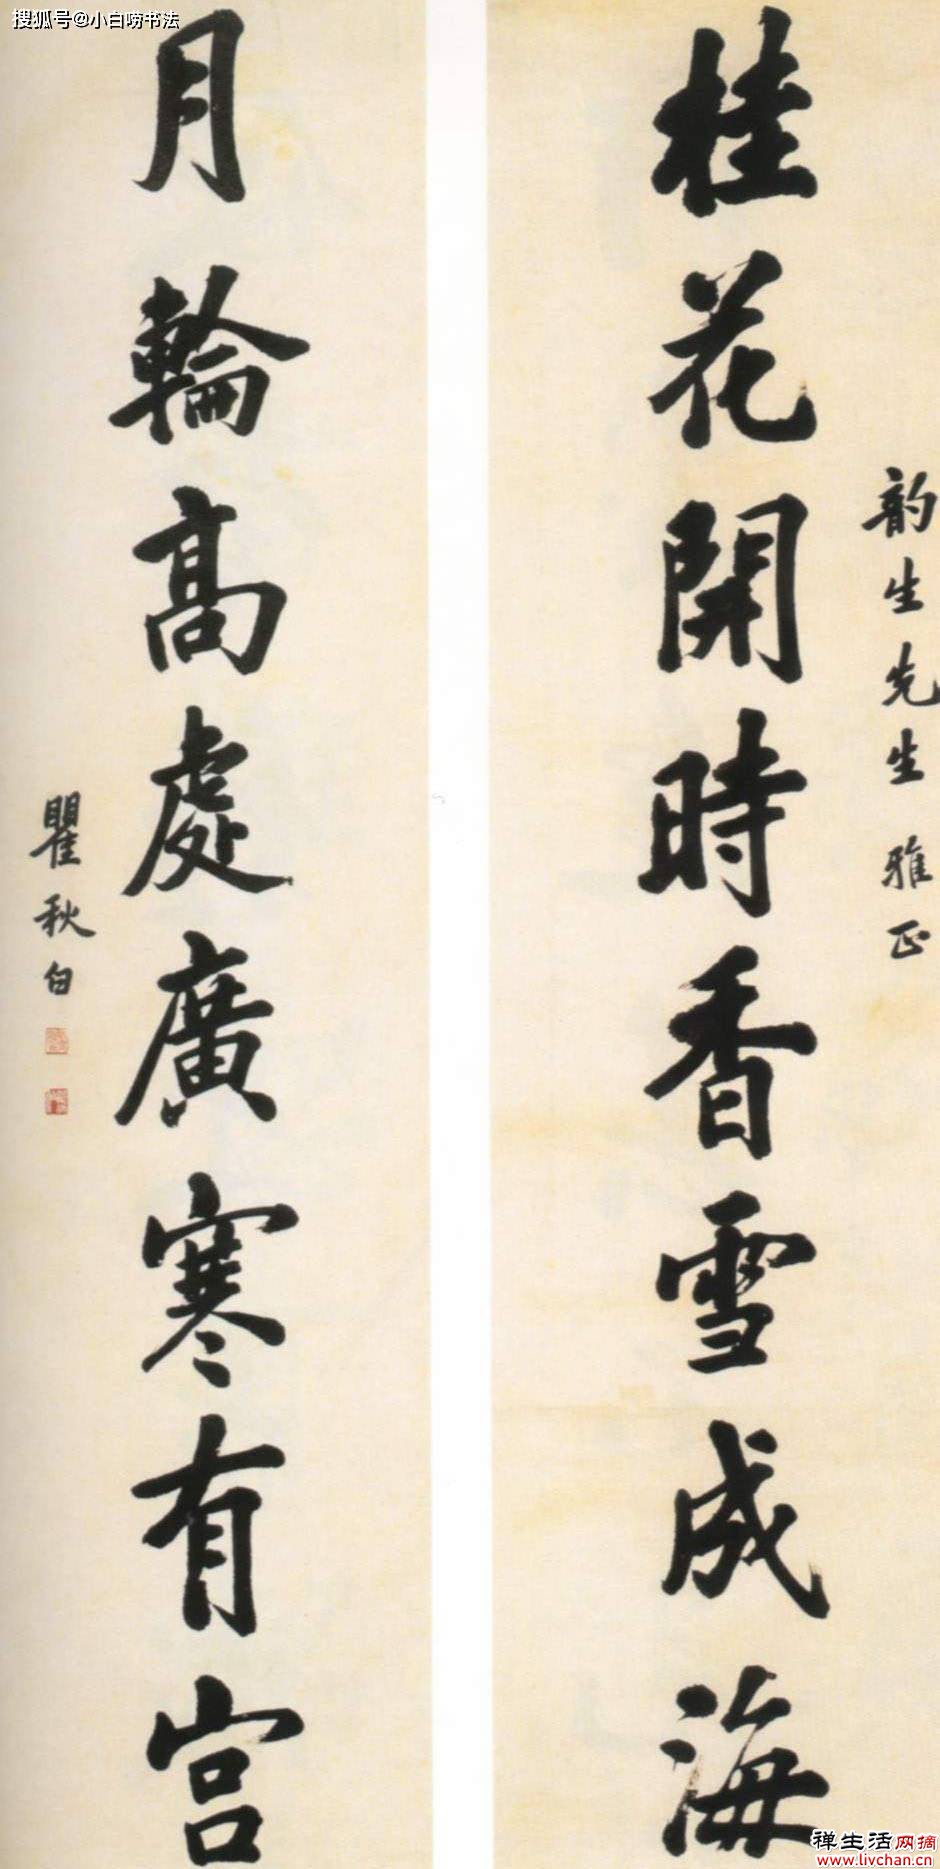 搜狐号@小白唠书法
韵生先生雅正
桂花開時香雪成海
月輪高處廣寒有宫
瞿秋白
禅生活网摘
www.livchan.cn